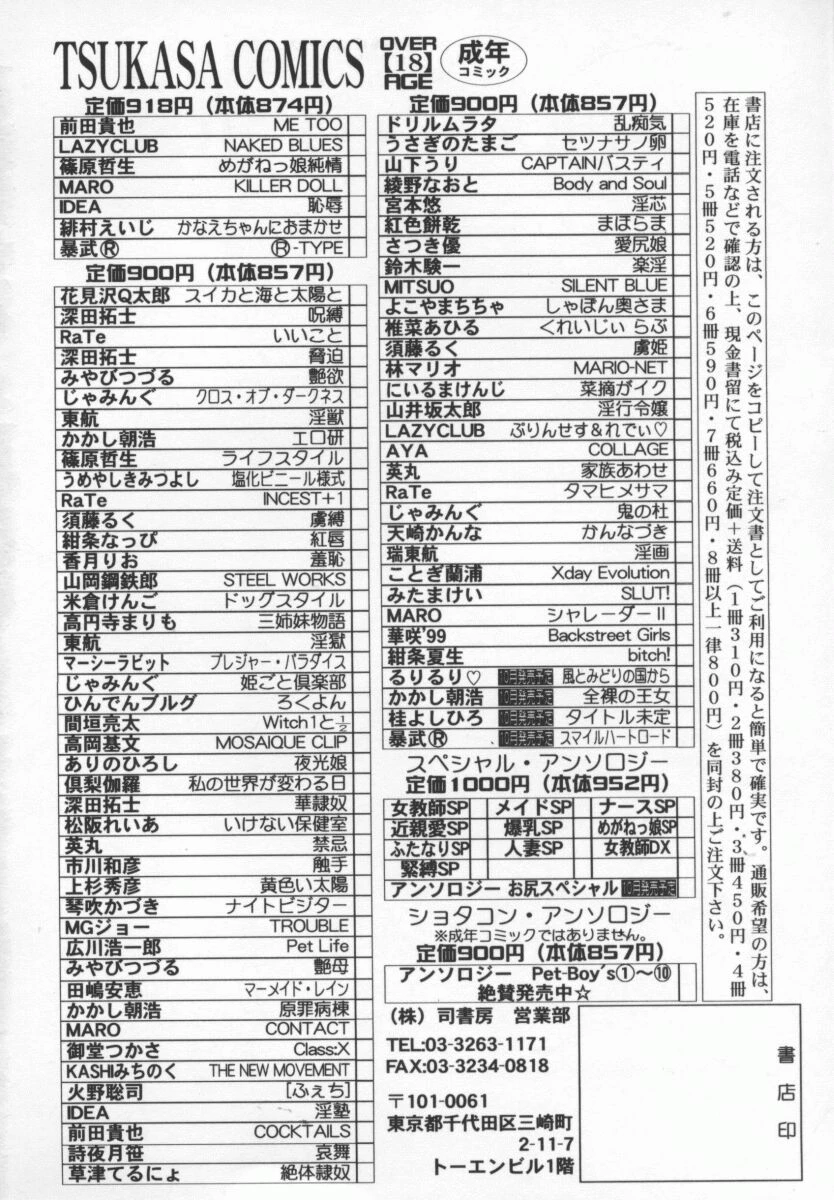 TSUKASA COMICS
OVER
【18】
AGE
成年
コミック
定価918円（本体874円）
前田貴也 ME TOO
LAZYCLUB NAKED BLUES
篠原哲生 めがねっ娘純情
MARO KILLER DOLL
IDEA 恥辱
緋村えいじ かなえちゃんにおまかせ
暴武Ⓡ Ⓡ-TYPE
定価900円（本体857円）
花見沢Q太郎 スイカと海と太陽と
深田拓士 呪縛
RaTe いいこと
深田拓士 脅迫
みやびつづる 艶欲
じゃみんぐ クロス・オブ・ダークネス
東航 淫獣
かかし朝浩 エロ研
篠原哲生 ライフスタイル
うめやしきみつよし 塩化ビニール様式
RaTe INCEST+1
須藤るく 虜縛
紺条なっぴ 紅唇
香月りお 羞恥
山岡鋼鉄郎 STEEL WORKS
米倉けんご ドッグスタイル
高円寺まりも 三姉妹物語
東航 淫獄
マーシーラビット プレジャー・パラダイス
じゃみんぐ 姫ごと倶楽部
ひんでんブルグ ろくよん
間垣亮太 Witch1と½
高岡基文 MOSAIQUE CLIP
ありのひろし 夜光娘
倶梨伽羅 私の世界が変わる日
深田拓士 華隷奴
松阪れいあ いけない保健室
英丸 禁忌
市川和彦 触手
上杉秀彦 黄色い太陽
琴吹かづき ナイトビジター
MGジョー TROUBLE
広川浩一郎 Pet Life
みやびつづる 艶母
田嶋安恵 マーメイド・レイン
かかし朝浩 原罪病棟
MARO CONTACT
御堂つかさ Class:X
KASHIみちのく THE NEW MOVEMENT
火野聡司 [ふぇち]
IDEA 淫塾
前田貴也 COCKTAILS
詩夜月笹 哀舞
草津てるにょ 絶体隷奴
定価900円（本体857円）
ドリルムラタ 乱痴気
うさぎのたまご セツナサノ卵
山下うり CAPTAINバスティ
綾野なおと Body and Soul
宮本悠 淫芯
紅色餅乾 まほらま
さつき優 愛尻娘
鈴木験一 楽淫
MITSUO SILENT BLUE
よこやまちちゃ しゃぼん奥さま
椎菜あひる くれいじぃ らぶ
須藤るく 虜姫
林マリオ MARIO-NET
にいるまけんじ 菜摘がイク
山井坂太郎 淫行令嬢
LAZYCLUB ぷりんせす&れでぃ♡
AYA COLLAGE
英丸 家族あわせ
RaTe タマヒメサマ
じゃみんぐ 鬼の杜
天崎かんな かんなづき
瑞東航 淫画
ことぎ蘭浦 Xday Evolution
みたまけい SLUT!
MARO シャレーダーⅡ
華咲'99 Backstreet Girls
紺条夏生 bitch!
るりるり♡ 10月発売予定 風とみどりの国から
かかし朝浩 10月発売予定 全裸の王女
桂よしひろ 10月発売予定 タイトル未定
暴武Ⓡ 10月発売予定 スマイルハートロード
スペシャル・アンソロジー
定価1000円（本体952円）
女教師SP メイドSP ナースSP
近親愛SP 爆乳SP めがねっ娘SP
ふたなりSP 人妻SP 女教師DX
緊縛SP
アンソロジー お尻スペシャル 10月発売予定
ショタコン・アンソロジー
※成年コミックではありません。
定価900円（本体857円）
アンソロジー Pet-Boy's①～⑩
絶賛発売中☆
（株）司書房 営業部
TEL:03-3263-1171
FAX:03-3234-0818
〒101-0061
東京都千代田区三崎町
2-11-7
トーエンビル1階
書店印
書店に注文される方は、このページをコピーして注文書としてご利用になると簡単で確実です。通販希望の方は、
在庫を電話などで確認の上、現金書留にて税込み定価＋送料（1冊310円・2冊380円・3冊450円・4冊
520円・5冊520円・6冊590円・7冊660円・8冊以上一律800円）を同封の上ご注文下さい。